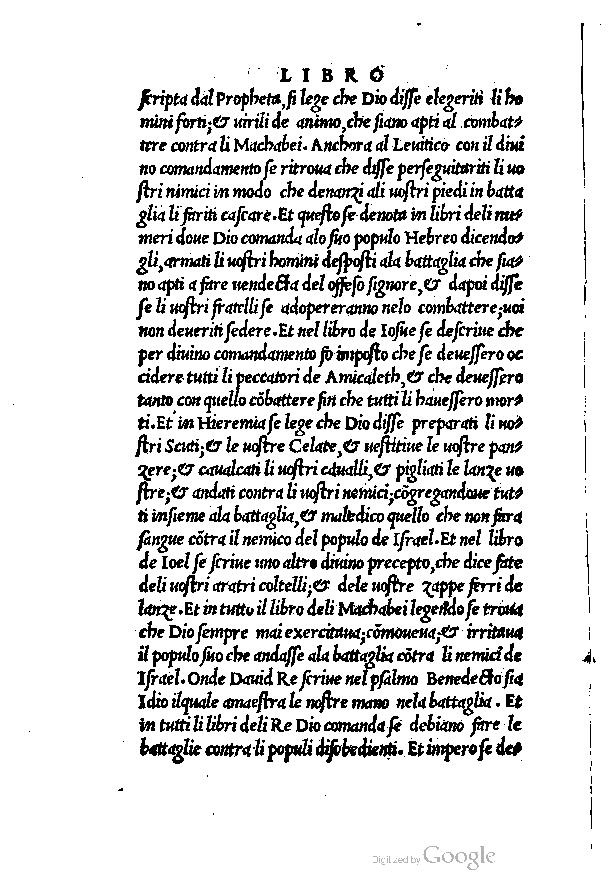 LIBRO
scripta dal Propheta, si lege che Dio disse elegeriti li ho
mini forti; & uirili de animo, che siano apti al combat-
tere contra li Machabei. Anchora al Leuitico con il diui
no comandamento se ritroua che disse perseguitariti li uo
stri nimici in modo che denanzi ali uostri piedi in batta
glia li fariti cascare. Et questo se denota in libri deli nu-
meri doue Dio comanda alo suo populo Hebreo dicendo-
gli, armati li uostri homini desposti ala battaglia che sia-
no apti a fare uendecta del offeso signore, & dapoi disse
se li uostri fratelli se adopereranno nelo combattere; uoi
non deueriti sedere. Et nel libro de Iosue se descriue che
per diuino comandamento fo imposto che se deuessero oc
cidere tutti li peccatori de Amicaleth, & che deuessero
tanto con quello cōbattere fin che tutti li hauessero mor-
ti. Et in Hieremia se lege che Dio disse preparati li uo-
stri Scuti; & le uostre Celate, & uestitiue le uostre pan-
zere; & caualcati li uostri caualli, & pigliati le lanze uo
stre; & andati contra li uostri nemici; cōgregandoue tut-
ti insieme ala battaglia, & maledico quello che non fara
sangue cōtra il nemico del populo de Israel. Et nel libro
de Ioel se scriue uno altro diuino precepto, che dice fate
deli uostri aratri coltelli; & dele uostre zappe ferri de
lanze. Et in tutto il libro deli Machabei legendo se troua
che Dio sempre mai exercitaua; cōmoueua; & irritaua
il populo suo che andasse ala battaglia cōtra li nemici de
Israel. Onde Dauid Re scriue nel psalmo Benedecto sia
Idio ilquale amaestra le nostre mano nela battaglia. Et
in tutti li libri deli Re Dio comanda se debiano fare le
battaglie contra li populi disobedienti. Et impero se de-
Digitized by Google